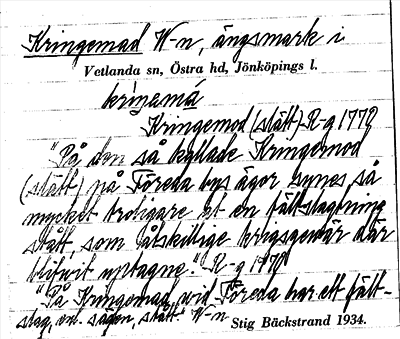 Kringemad N-n, ängsmark i
Vetlanda sn, Östra hd, Jönköpings l.
kriŋemá
Kringemod (stått) R-g 1778
"På den så kallade Kringemod
(stått) på Föreda bys ägor synes så
mycket troligare at en fältslagtning
stått, som åtskillige krigsgewär där
blifwit uptagne." R-g 1778
"På Kringemad wid Föreda har ett fält-
slag, enl. sägen, stått." N-n
Stig Bäckstrand 1934.